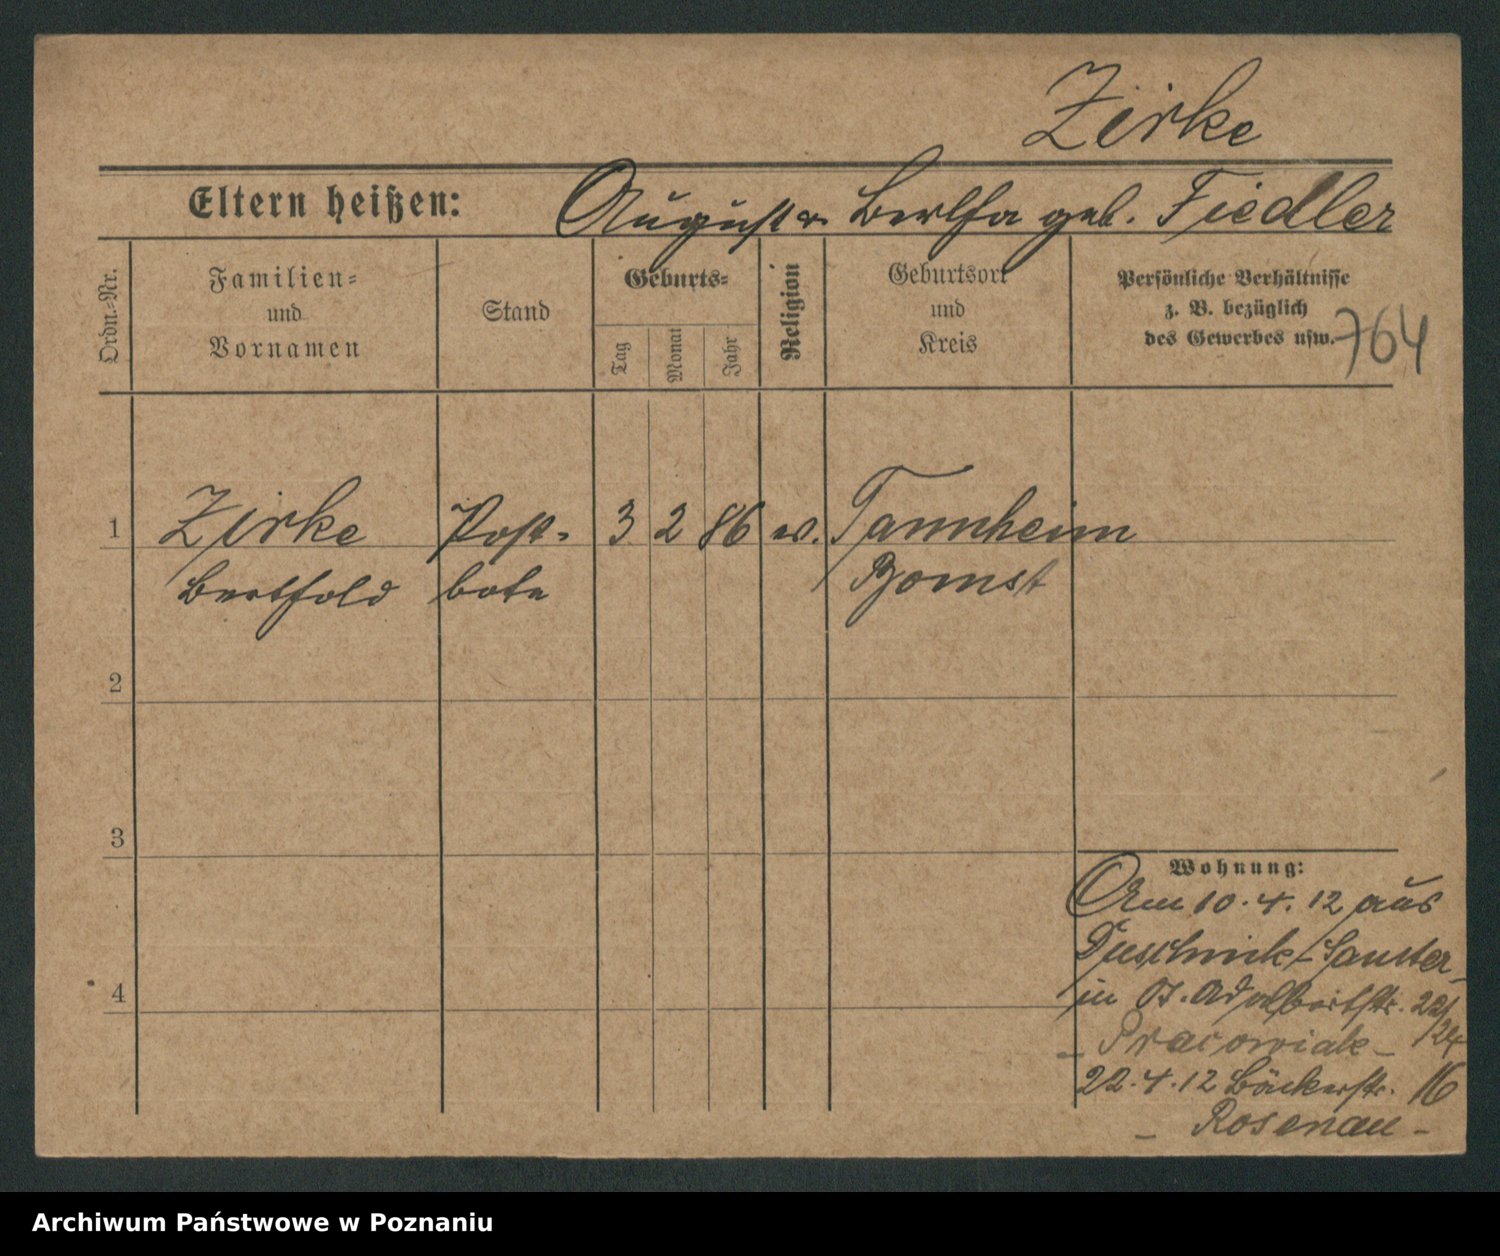 Zirke
Eltern heißen: August u. Bertha geb. Fiedler
Ordn.-Nr.
Familien-
und
Vornamen
Stand
Geburts-
Tag
Monat
Jahr
Religion
Geburtsort
und
Kreis
Persönliche Verhältnisse
z. B. bezüglich
des Gewerbes usw.
764
1 Zirke Post- 3 2 86 ev. Tannheim
Berthold bote Bomst
2
3
4
Wohnung:
Am 10.4.12 aus
Duschnik-Samter
in O. Adalbertstr. 22/24
- Pracowiak -
22.4.12 Bäckerstr. 16
- Rosenau -
Archiwum Państwowe w Poznaniu